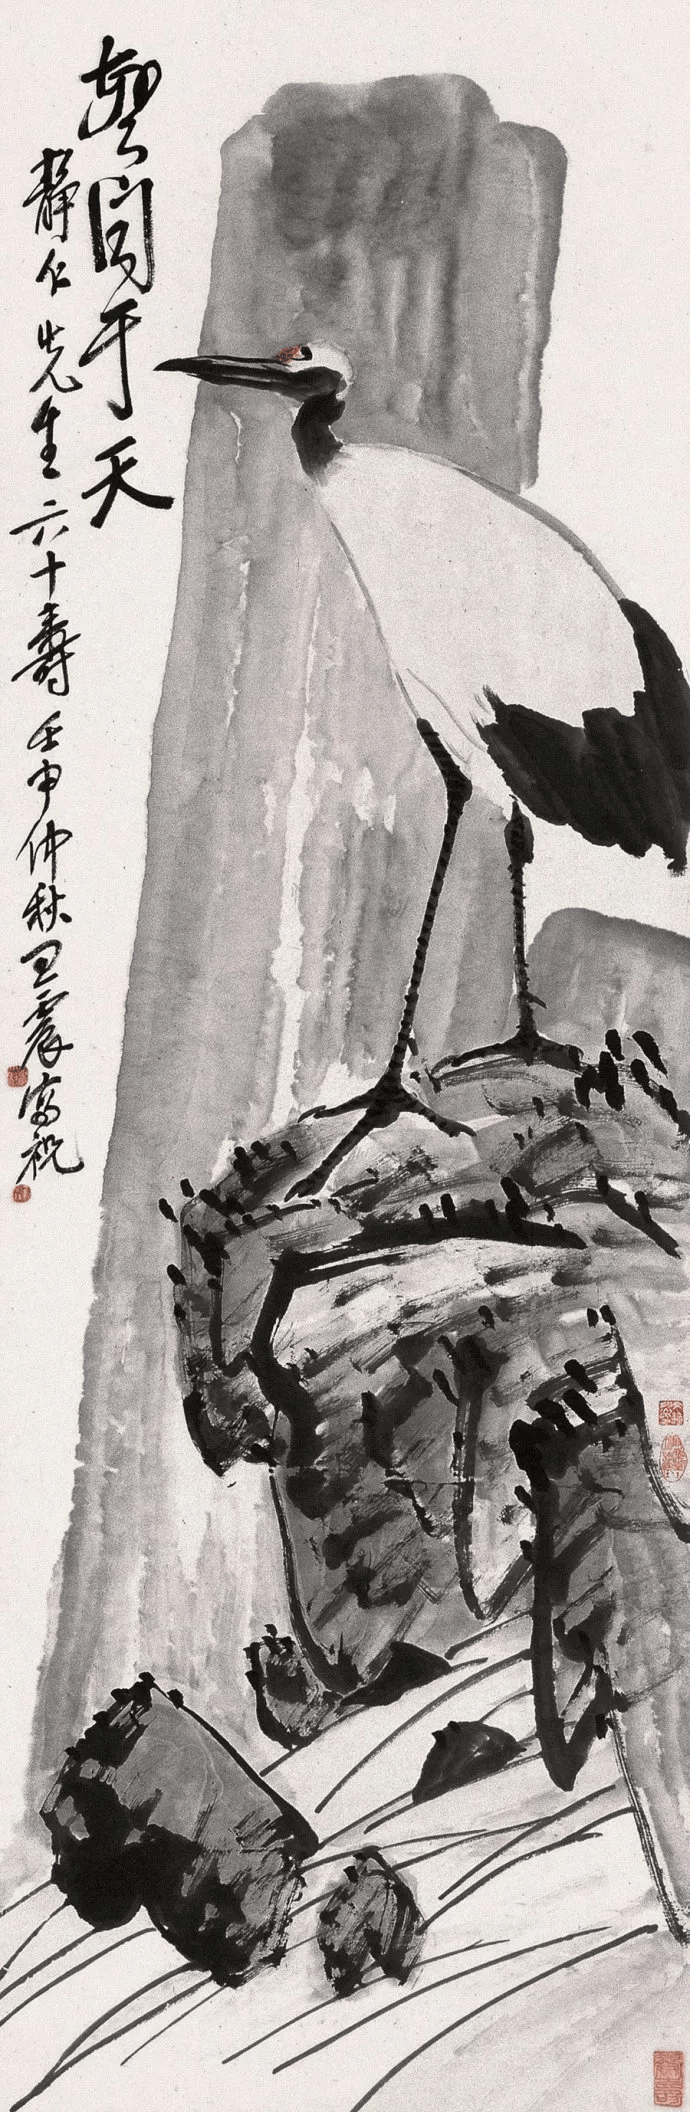 聲聞于天
靜仁先生六十壽壬申仲秋王震寫祝